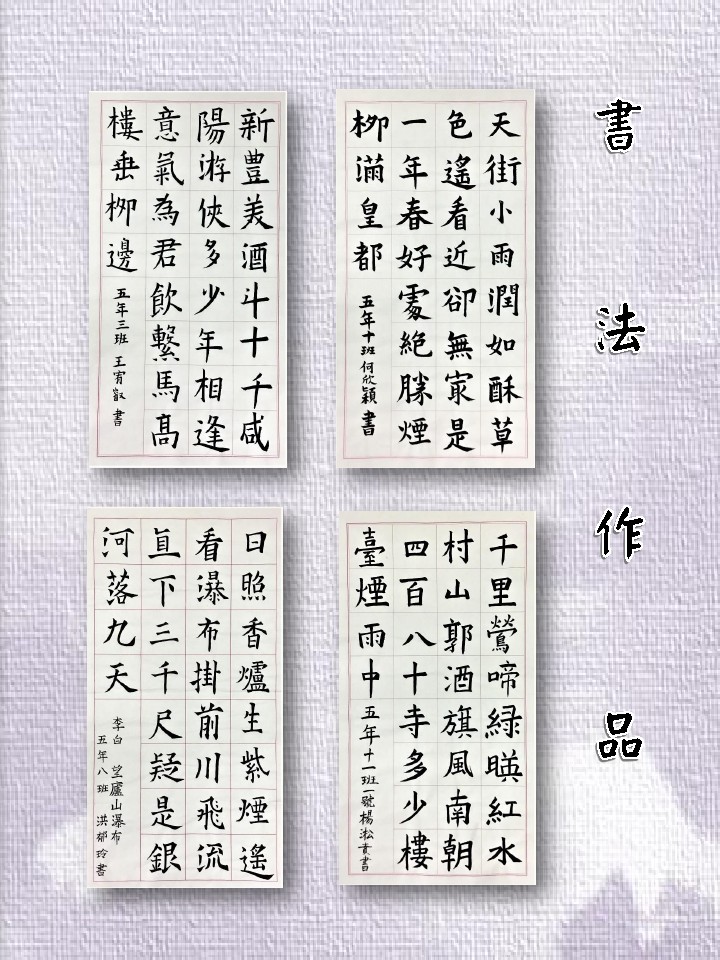 書法作品
天街小雨潤如酥草
色遙看近卻無冣是
一年春好處絕勝煙
柳滿皇都
五年十班何欣穎書
新豐美酒斗十千咸
陽游俠多少年相逢
意氣為君飲繫馬高
樓垂柳邊
五年三班 王宥叡 書
千里鶯啼綠暎紅水
村山郭酒旗風南朝
四百八十寺多少樓
臺煙雨中
五年十一班一號楊淞貴書
日照香爐生紫煙遙
看瀑布掛前川飛流
直下三千尺疑是銀
河落九天
李白 望廬山瀑布
五年八班 洪郁玲書